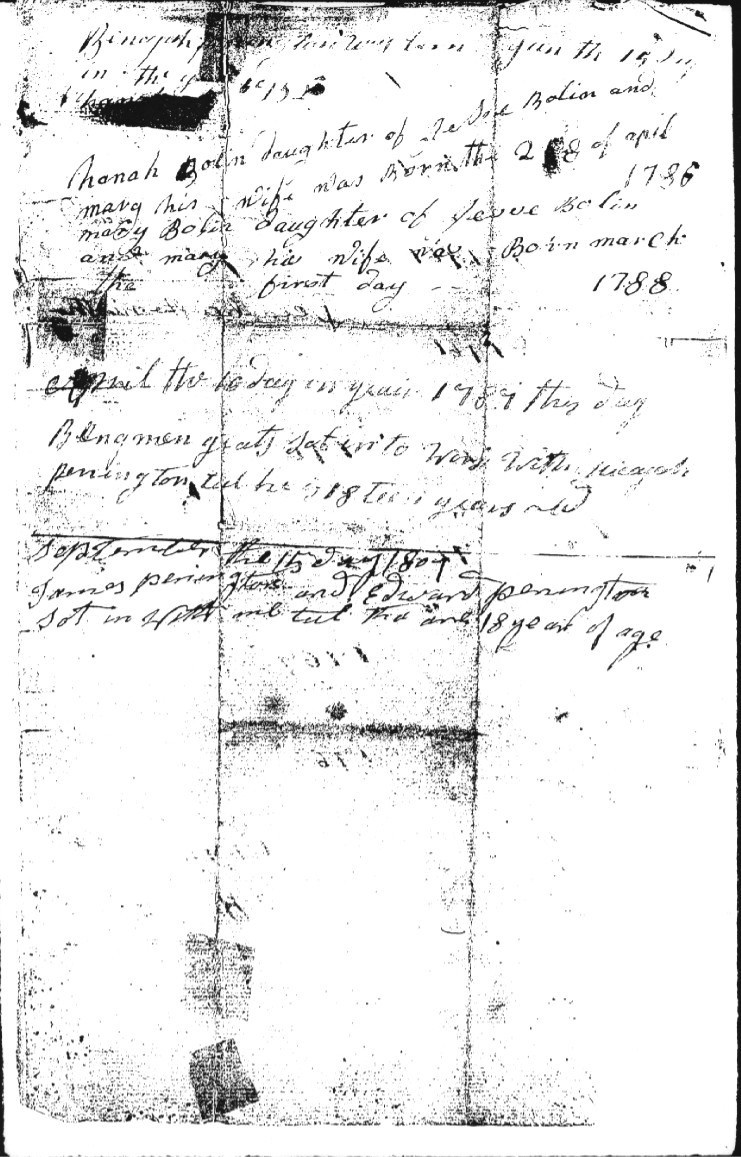 was born Jun th 19 Day
in the
hanah Bolin daughter of Jesse Bolin and
mary his wife was Born the 28 of april
1786
mary Bolin daughter of Jesse Bolin
and mary his wife was Born march
the first day 1788
April the 10 day in year this day
Bengmen sot in to Work With micajah
penington tel he is 18 teen years old
September the 15 day 1807
James penington and Edward penington
Sot in With me tel tha are 18 year of age